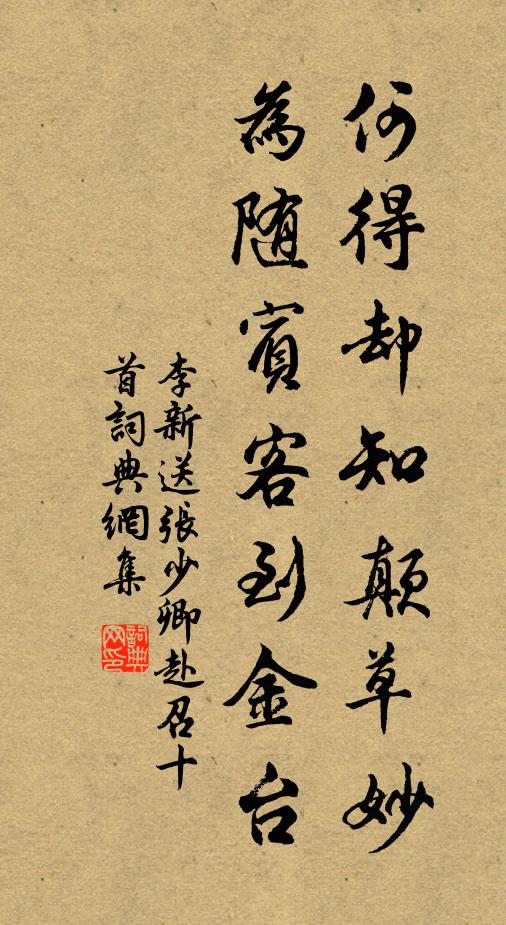 何得却知顛草妙
為随賓客到金台
李新送張少卿赴召十
首詞典網集
詞典
网印